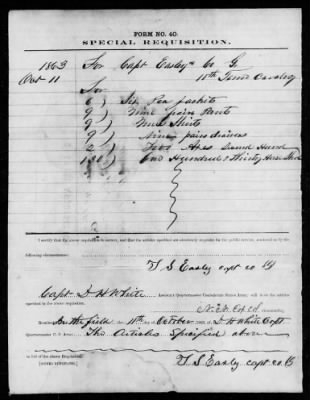 FORM NO. 40.
SPECIAL REQUISITION.
1863 For Capt Easly Co G.
Oct 11 11th Tenn Cavalry
For
6) Six Pea Jackits
9) Nine pair Pants
9) Nine Shirts
9) Nine pair draws
2) Two Axes Hand
130) One Hundred & Thirty Horse Shoes
I certify that the above requisition is correct, and that the articles specified are absolutely requisite for the public service, rendered so by the
following circumstances:
T S Easly capt co G
Capt. D H White Assistant Quartermaster Confederate States Army,
to the above requisition.
the 11th of October D H White Capt
Quartermaster C. S. Army,
The Articles Specified above
in full of the above Requisition.
T S Easly capt co G